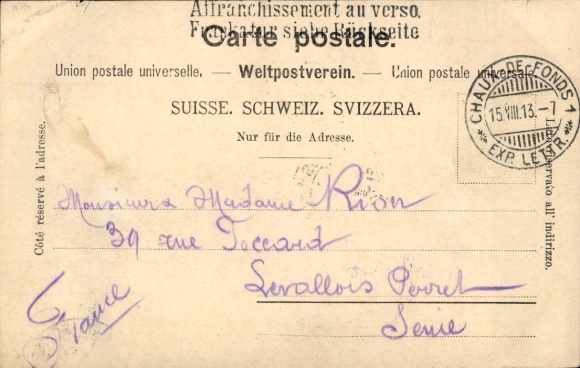 Affranchissement au verso.
Frankatur siehe Rückseite
Carte postale.
Union postale universelle. — Weltpostverein. — Unione postale universale.
SUISSE. SCHWEIZ. SVIZZERA.
Nur für die Adresse.
Côté réservé à l'adresse.
Lato riservato all' indirizzo.
CHAUX-DE-FONDS 1
15.VIII.13.-7
EXP. LETTR.
Monsieur & Madame Rion
39 rue Toccard
Levallois Perret
Seine
France